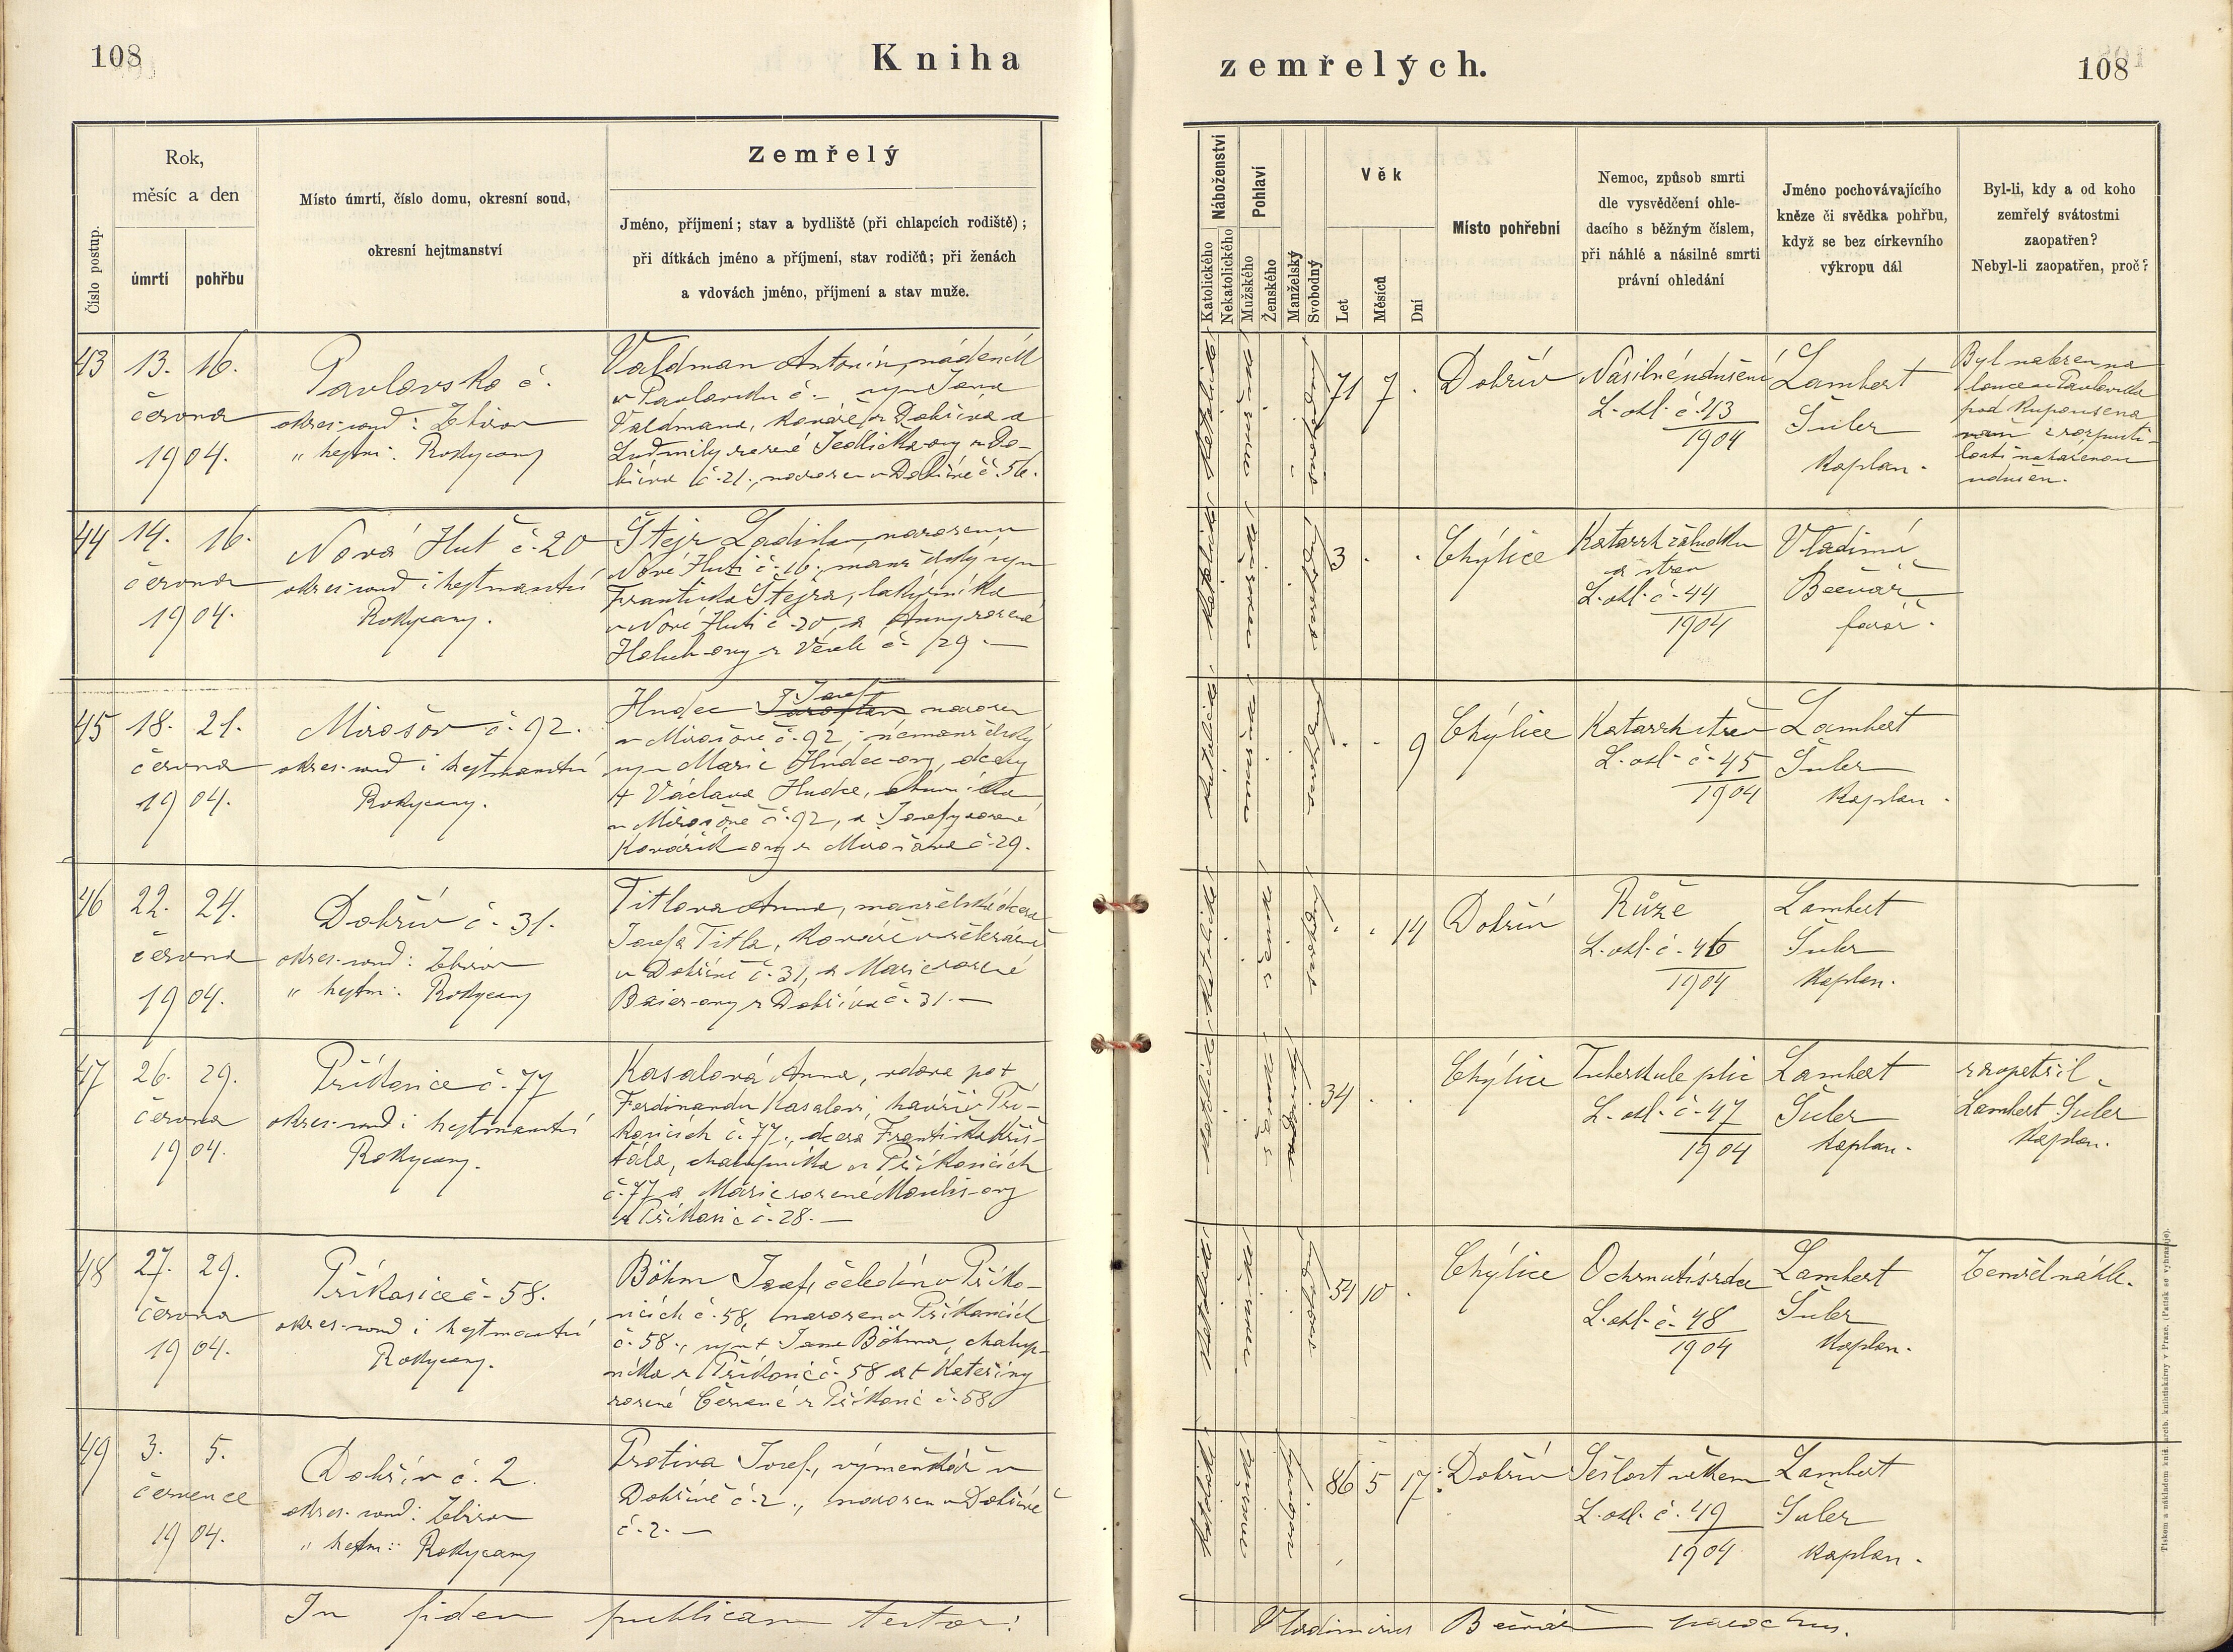 108
Kniha
zemřelých.
108
Číslo postup.
Rok,
měsíc a den
úmrtí
pohřbu
Místo úmrtí, číslo domu, okresní soud,
okresní hejtmanství
Zemřelý
Jméno, příjmení; stav a bydliště (při chlapcích rodiště);
při dítkách jméno a příjmení, stav rodičů; při ženách
a vdovách jméno, příjmení a stav muže.
Náboženství
Katolického
Nekatolického
Pohlaví
Mužského
Ženského
Manželský
Svobodný
Věk
Let
Měsíců
Dní
Místo pohřební
Nemoc, způsob smrti
dle vysvědčení ohle-
dacího s běžným číslem,
při náhlé a násilné smrti
právní ohledání
Jméno pochovávajícího
kněze či svědka pohřbu,
když se bez církevního
výkropu dál
Byl-li, kdy a od koho
zemřelý svátostmi
zaopatřen?
Nebyl-li zaopatřen, proč?
43 13. 16.
června
1904.
Pavlovsko č.
okres. soud: Zbirov
" hejtm. Rokycany
Valdman Antonín, nádeník
v Pavlovsku č. - syn Jana
Valdmana, kováře z Dobříva a
Ludmily rozené Jedlička-ovy z Do-
bříva č. 21., narozen v Dobřívě č. 56.
katolické mužské svobodný 71 7 .
Dobřív
Násilné udušení
L. ohl. č. 43
1904
Lambert
Šuler
kaplan.
Byl nalezen na
louce u Pavlovska
pod
udušen.
44 14. 16.
června
1904.
Nová Huť č. 20
okres. soud i hejtmanství
Rokycany.
Štejr Ladislav, narozen v
Nové Huti č. 16., manželský syn
Františka Štejra,
v Nové Huti č. 20, a Anny rozené
Holub-ovy z č. 129. —
3 . .
Chýlice
Katarrh žaludku
a střev
L. ohl. č. 44
1904
Vladimír
Bečvář
farář.
45 18. 21.
června
1904.
Mirošov č. 92.
okres. soud i hejtmanství
Rokycany.
Josef
Hudec narozen
v Mirošově č. 92, nemanželský
syn Marie Hudec-ovy, dcery
† Václava Hudce,
v Mirošově č. 92, a Josefy rozené
Kovářík-ovy z Mirošova č. 29.
. . 9
Chýlice
Katarrh střev
L. ohl. č. 45
1904
Lambert
Šuler
kaplan.
46 22. 24.
června
1904.
Dobřív č. 31.
okres. soud: Zbirov
" hejtm. Rokycany
Titlova Anna, manželská dcera
Josefa Titla, kováře v železárně
v Dobřívě č. 31, a Marie rozené
Baier-ovy z Dobříva č. 31. —
. . 14
Dobřív
Růže
L. ohl. č. 46
1904
Lambert
Šuler
kaplan.
47 26. 29.
června
1904.
Příkosice č. 77
okres. soud i hejtmanství
Rokycany.
Kasalová Anna, vdova po †
Ferdinandu Kasalovi, havíři v Pří-
kosicích č. 77., dcera Františka Kříš-
tála, chalupníka v Příkosicích
č. 77 a Marie rozené Moulis-ovy
z Příkosic č. 28. —
34 . .
Chýlice
Tuberkule plic
L. ohl. č. 47
1904
Lambert
Šuler
kaplan.
zaopatřil
Lambert Šuler
kaplan.
48 27. 29.
června
1904.
Příkosice č. 58.
okres. soud i hejtmanství
Rokycany.
Böhm Josef, čeledín v Příko-
sicích č. 58, narozen v Příkosicích
č. 58., syn † Jana Böhma, chalup-
níka z Příkosic č. 58 a † Kateřiny
rozené Červené z Příkosic č. 58
54 10 .
Chýlice
Ochrnutí srdce
L. ohl. č. 48
1904
Lambert
Šuler
kaplan.
Zemřel náhle.
49 3. 5.
července
1904.
Dobřív č. 2.
okres. soud: Zbirov
" hejtm.: Rokycany
Protiva Josef, výmenkář v
Dobřívě č. 2., narozen v Dobřívě
č. 2. —
86 5 17
Dobřív
Sešlost věkem
L. ohl. č. 49
1904
Lambert
Šuler
kaplan.
In fidem publicam testor:
Vladimirus Bečvář parochus.
Tiskem a nákladem kníž. arcib. knihtiskárny v Praze. (Patisk se vyhrazuje).